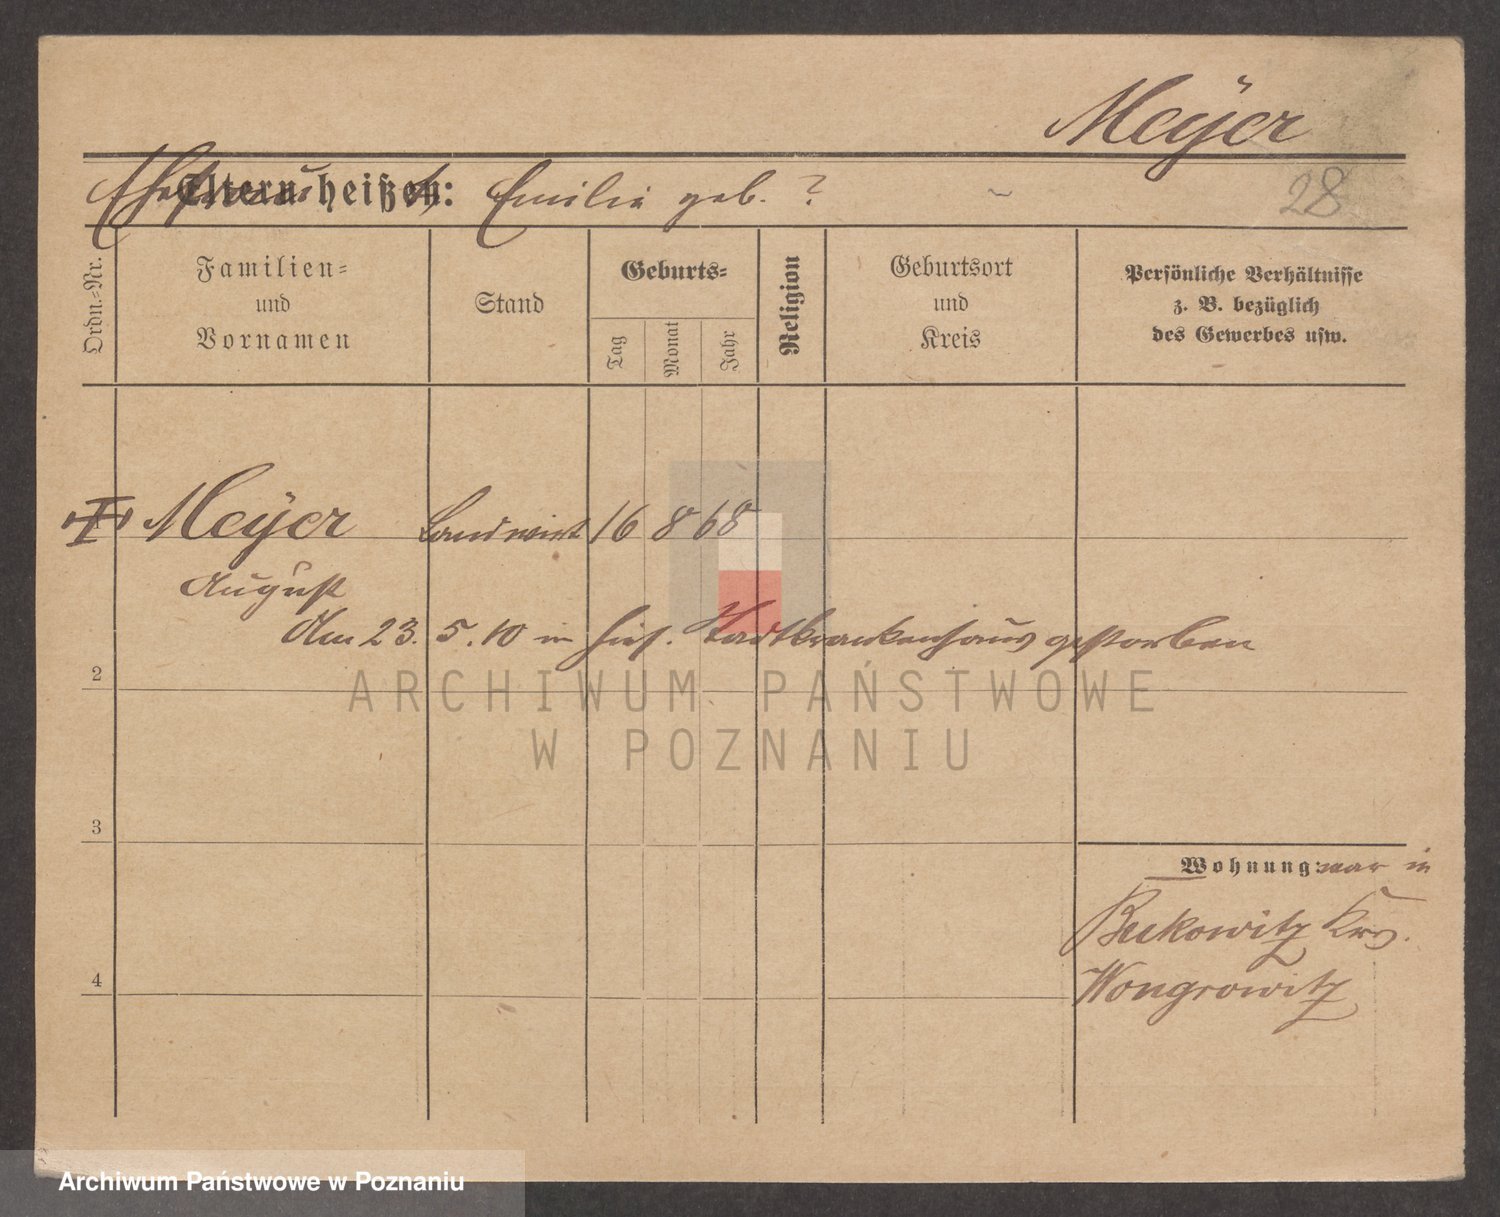 Meÿer
Eltern heißen: Ehefrau Emilie geb. ?
28
Ordn.-Nr.
Familien-
und
Vornamen
Stand
Geburts-
Tag
Monat
Jahr
Religion
Geburtsort
und
Kreis
Persönliche Verhältnisse
z. B. bezüglich
des Gewerbes usw.
Meÿer Landwirt 16 8 68
August
Am 23. 5. 10 im hies. Stadtkrankenhaus gestorben
2
ARCHIWUM PAŃSTWOWE
W POZNANIU
3
Wohnung: war in
Bukowitz Krs.
Wongrowitz
4
Archiwum Państwowe w Poznaniu